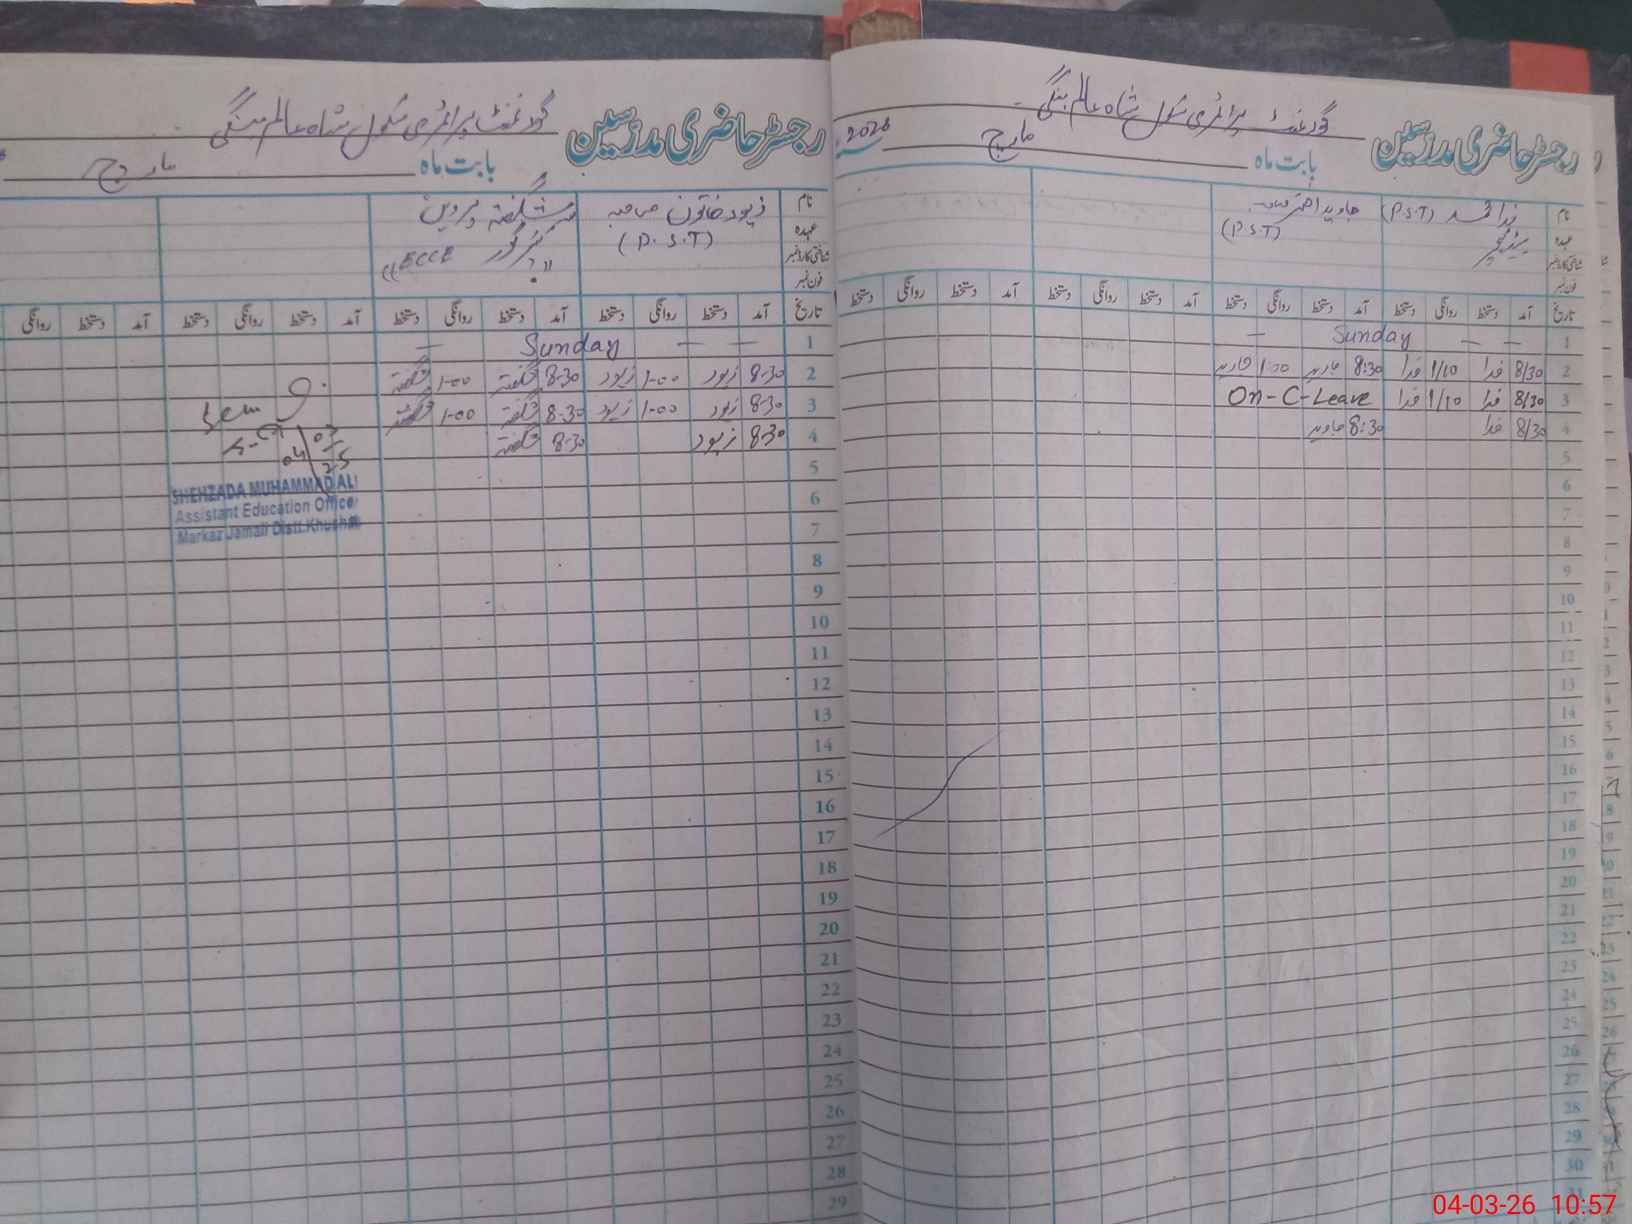 رجسٹر حاضری مدرسین
گورنمنٹ پرائمری سکول شاہ عالم بنگی
بابت ماہ مارچ 2026
نام فدا محمد (P.S.T) جاوید اختر صاحب (P.S.T)
عہدہ
شناختی کارڈ نمبر
فون نمبر
تاریخ آمد دستخط روانگی دستخط آمد دستخط روانگی دستخط آمد دستخط روانگی دستخط آمد دستخط روانگی دستخط
1 — — Sunday —
2 8/30 فدا 1/10 فدا 8:30 جاوید 1:00 جاوید
3 8/30 فدا 1/10 فدا On-C-Leave
4 8/30 فدا 8:30 جاوید
5
6
7
8
9
10
11
12
13
14
15
16
17
18
19
20
21
22
23
24
25
26
27
28
29
30
رجسٹر حاضری مدرسین
گورنمنٹ پرائمری سکول شاہ عالم بنگی
بابت ماہ مارچ
نام زیور خاتون صاحبہ شگفتہ پروین
عہدہ (P.S.T) کیئر گور "ECCE"
شناختی کارڈ نمبر
فون نمبر
تاریخ آمد دستخط روانگی دستخط آمد دستخط روانگی دستخط آمد دستخط روانگی دستخط آمد دستخط روانگی
1 — — Sunday —
2 8-30 زیور 1-00 زیور 8-30 شگفتہ 1-00 شگفتہ
3 8-30 زیور 1-00 زیور 8-30 شگفتہ 1-00 شگفتہ
4 8-30 زیور 8-30 شگفتہ
5
6
7
8
9
10
11
12
13
14
15
16
17
18
19
20
21
22
23
24
25
26
27
28
29
Seen
04/03
SHEHZADA MUHAMMAD ALI
Assistant Education Officer
Markaz Jamali Distt.Khushab
04-03-26 10:57